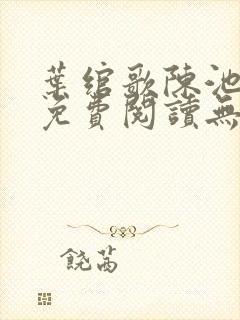 葉綰歌陳池
免費閱讀無
饒茜